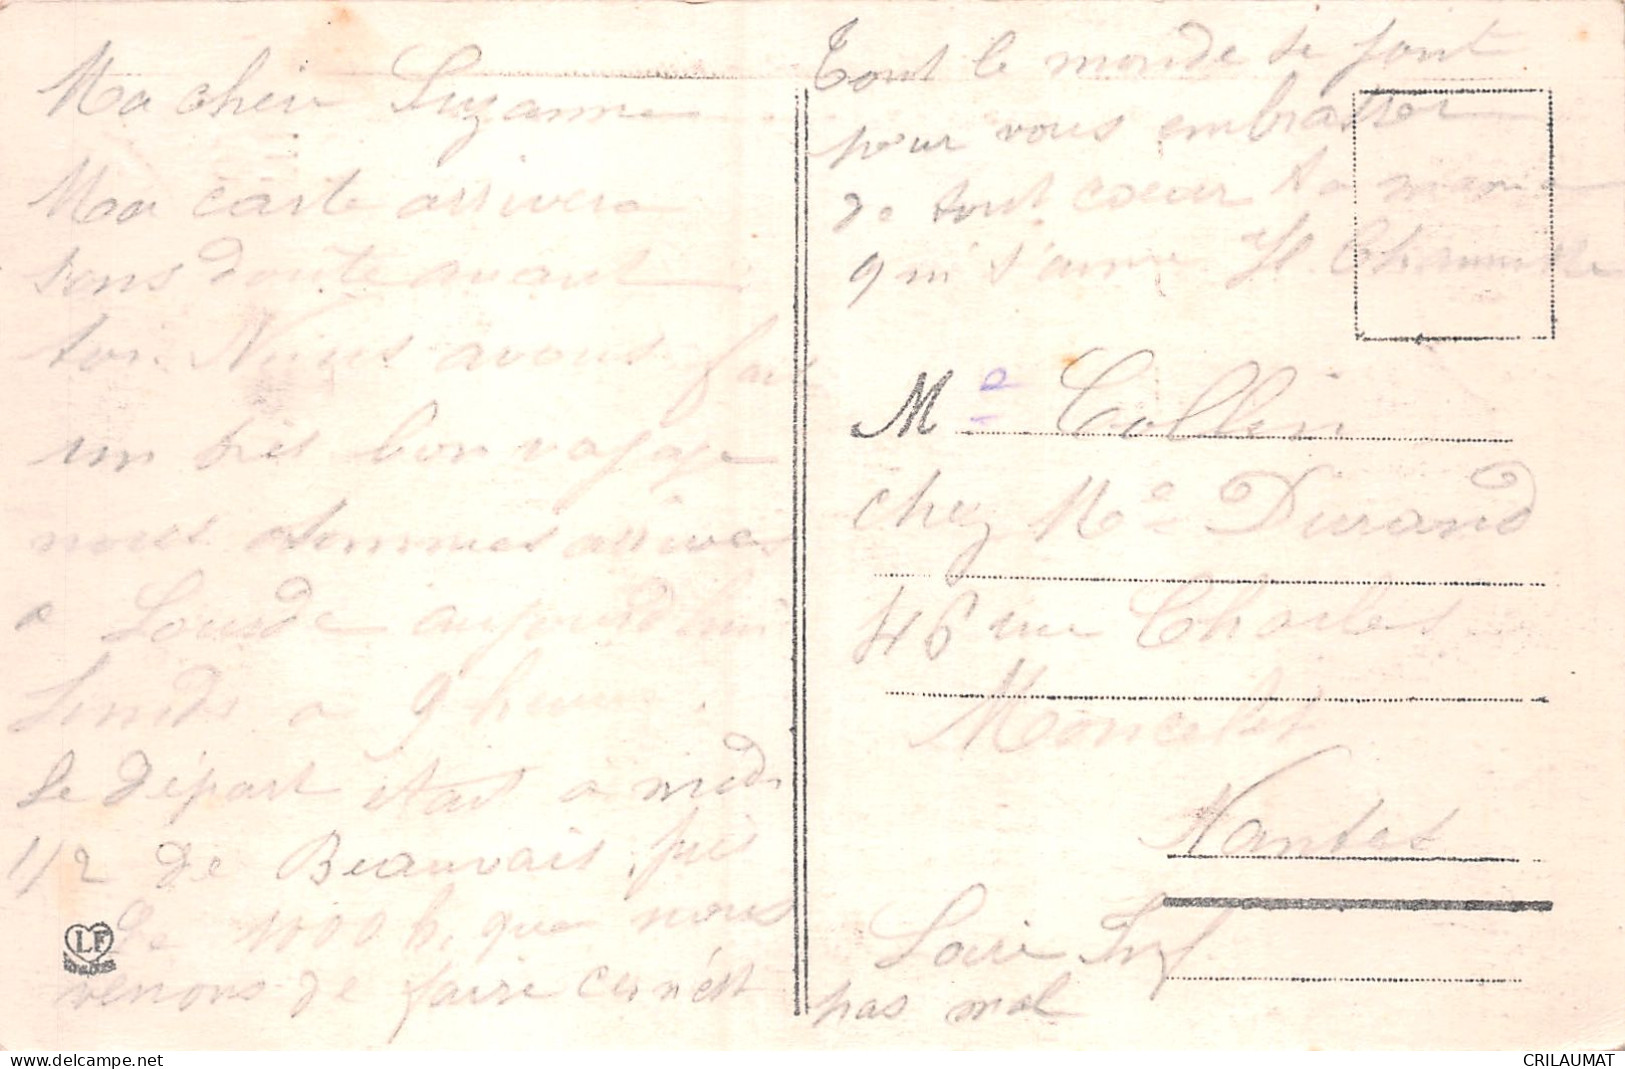 Ma cher Suzanne
Ma carte arrivera
sans doute avant
toi. Nous avons fait
un très bon voyage
nous sommes arrivés
a Lourde aujourd'hui
Lundi a 9 heures.
Le départ etait à midi
1/2 de Beauvais, pres
de 1000 k. que nous
venons de faire ce n'est
pas mal
Tout le monde se joint
pour vous embrasser
de tout coeur ta
qui t'aime
M e Collin
chez Me Durand
46 rue Charles
Moncelet
Nantes
Loire Inf
LF
delcampe.net
CRILAUMAT